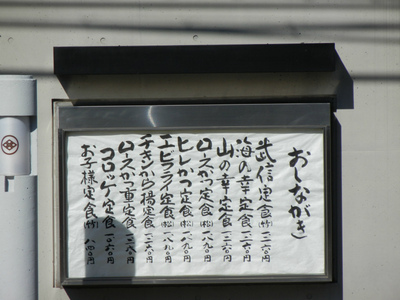 おしながき
武信定食(竹)一二六〇円
海の幸定食一二六〇円
山の幸定食一二六〇円
ロースかつ定食(松)一八九〇円
ヒレかつ定食(松)一八九〇円
エビフライ定食(松)一八九〇円
チキンから揚定食一二六〇円
ロースかつ重定食
コロッケ定食一〇六〇円
お子様定食(竹)八四〇円